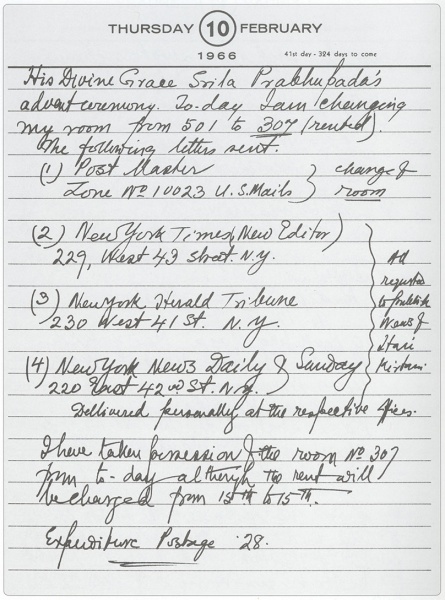 THURSDAY 10 FEBRUARY
1966
41st day - 324 days to come
His Divine Grace Srila Prabhupada's
advent ceremony. To-day I am changing
my room from 501 to 307 (rented).
The following letters sent.
(1) Post Master
Zone No 10023 U.S. Mails
change of
room
(2) New York Times, New Editor)
229, West 43 street. N.Y.
(3) New York Herald Tribune
230 West 41 St. N.Y.
(4) New York News Daily & Sunday
220 East 42nd St. N.Y.
requested
to publish
News of
Delivered personally at the respective offices.
I have taken possession of the room No 307
from to-day although the rent will
be charged from 15th to 15th.
Expenditure Postage .28.